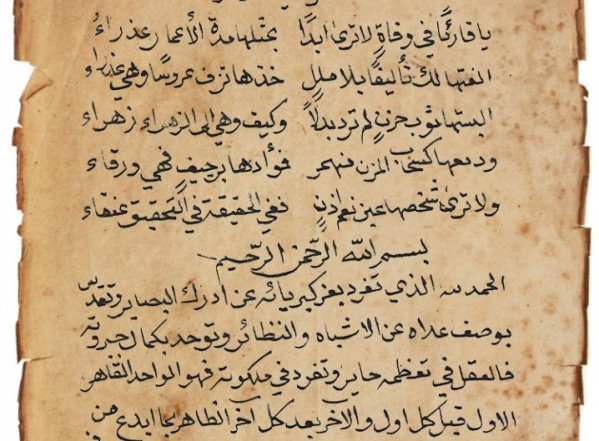 يا قارئًا في وفاة لا ترى ابدًا بمثلها مدة الأعمار عذراءُ
الفتها لك تأليفًا بلا ملل خذها تزف عروسًا وهي عذراء
البستها ثوب حزن لم ترد بدلًا وكيف وهي الى الزهراء زهراء
ودمعها كسحاب المزن منهمر فؤادها برجيف فهي ورقاء
ولا ترى شخصها عين نعم اذن ففي الحقيقة في التحقيق عنقاء
بسم الله الرحمن الرحيم
الحمد لله الذي تفرد بعز كبريائه عن ادراك البصاير وتقدّ
بوصف علاه عن الاشباه والنظائر وتوحد بكمال جبروته
فالعقل في تعظمه حاير وتفرد في ملكوته فهو الواحد القاهر
الاول قبل كل اول والآخر بعد كل آخر الظاهر بما ابدع من